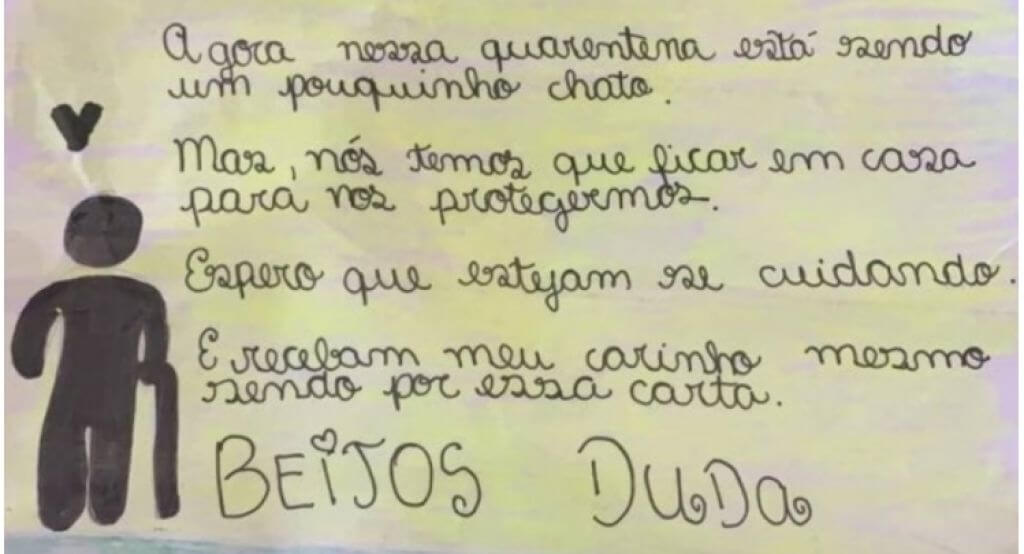 Agora nessa quarentena está sendo
um pouquinho chato.
Mas, nós temos que ficar em casa
para nos protegermos.
Espero que estejam se cuidando.
E recebam meu carinho mesmo
sendo por essa carta.
BEIJOS DUDA